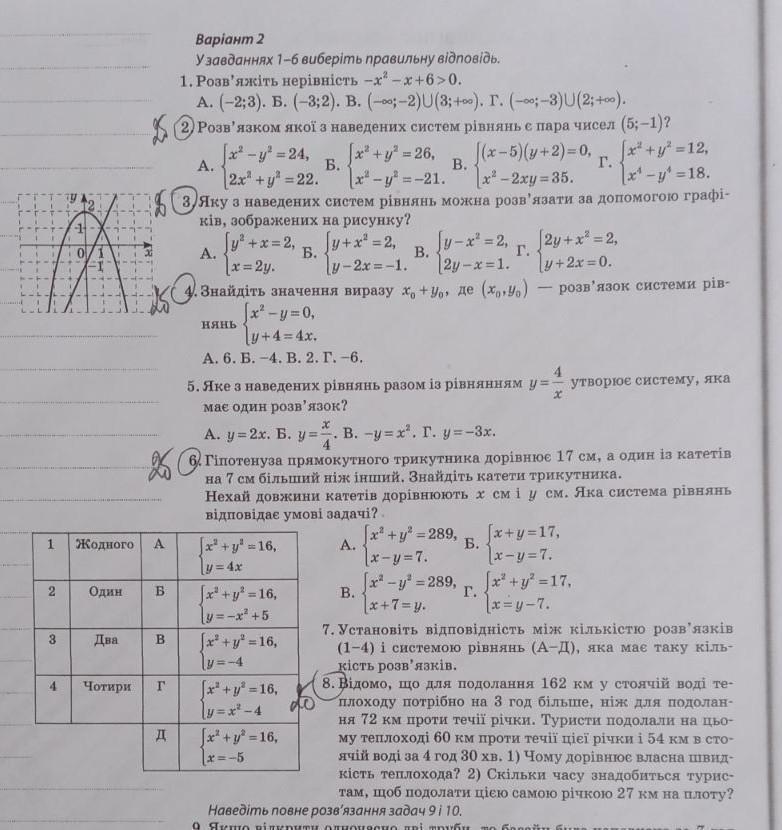 Варіант 2
У завданнях 1–6 виберіть правильну відповідь.
1. Розв'яжіть нерівність −x² − x + 6 > 0.
А. (−2;3). Б. (−3;2). В. (−∞;−2)∪(3;+∞). Г. (−∞;−3)∪(2;+∞).
2. Розв'язком якої з наведених систем рівнянь є пара чисел (5;−1)?
А. {x² − y² = 24, Б. {x² + y² = 26, В. {(x−5)(y+2) = 0, Г. {x² + y² = 12,
2x² + y² = 22. x² − y² = −21. x² − 2xy = 35. x⁴ − y⁴ = 18.
3. Яку з наведених систем рівнянь можна розв'язати за допомогою графі-
ків, зображених на рисунку?
А. {y² + x = 2, Б. {y + x² = 2, В. {y − x² = 2, Г. {2y + x² = 2,
x = 2y. y − 2x = −1. 2y − x = 1. y + 2x = 0.
y
2
1
0 1 x
−1
4. Знайдіть значення виразу x₀ + y₀, де (x₀, y₀) — розв'язок системи рів-
нянь {x² − y = 0,
y + 4 = 4x.
А. 6. Б. −4. В. 2. Г. −6.
5. Яке з наведених рівнянь разом із рівнянням y = 4/x утворює систему, яка
має один розв'язок?
А. y = 2x. Б. y = x/4. В. −y = x². Г. y = −3x.
6. Гіпотенуза прямокутного трикутника дорівнює 17 см, а один із катетів
на 7 см більший ніж інший. Знайдіть катети трикутника.
Нехай довжини катетів дорівнюють x см і y см. Яка система рівнянь
відповідає умові задачі?
А. {x² + y² = 289, Б. {x + y = 17,
x − y = 7. x − y = 7.
В. {x² − y² = 289, Г. {x² + y² = 17,
x + 7 = y. x = y − 7.
7. Установіть відповідність між кількістю розв'язків
(1–4) і системою рівнянь (А–Д), яка має таку кіль-
кість розв'язків.
1 Жодного А {x² + y² = 16,
y = 4x
2 Один Б {x² + y² = 16,
y = −x² + 5
3 Два В {x² + y² = 16,
y = −4
4 Чотири Г {x² + y² = 16,
y = x² − 4
Д {x² + y² = 16,
x = −5
8. Відомо, що для подолання 162 км у стоячій воді те-
плоходу потрібно на 3 год більше, ніж для подолан-
ня 72 км проти течії річки. Туристи подолали на цьо-
му теплоході 60 км проти течії цієї річки і 54 км в сто-
ячій воді за 4 год 30 хв. 1) Чому дорівнює власна швид-
кість теплохода? 2) Скільки часу знадобиться турис-
там, щоб подолати цією самою річкою 27 км на плоту?
Наведіть повне розв'язання задач 9 і 10.
9. Якщо відкрити одночасно дві труби, то басейн буде